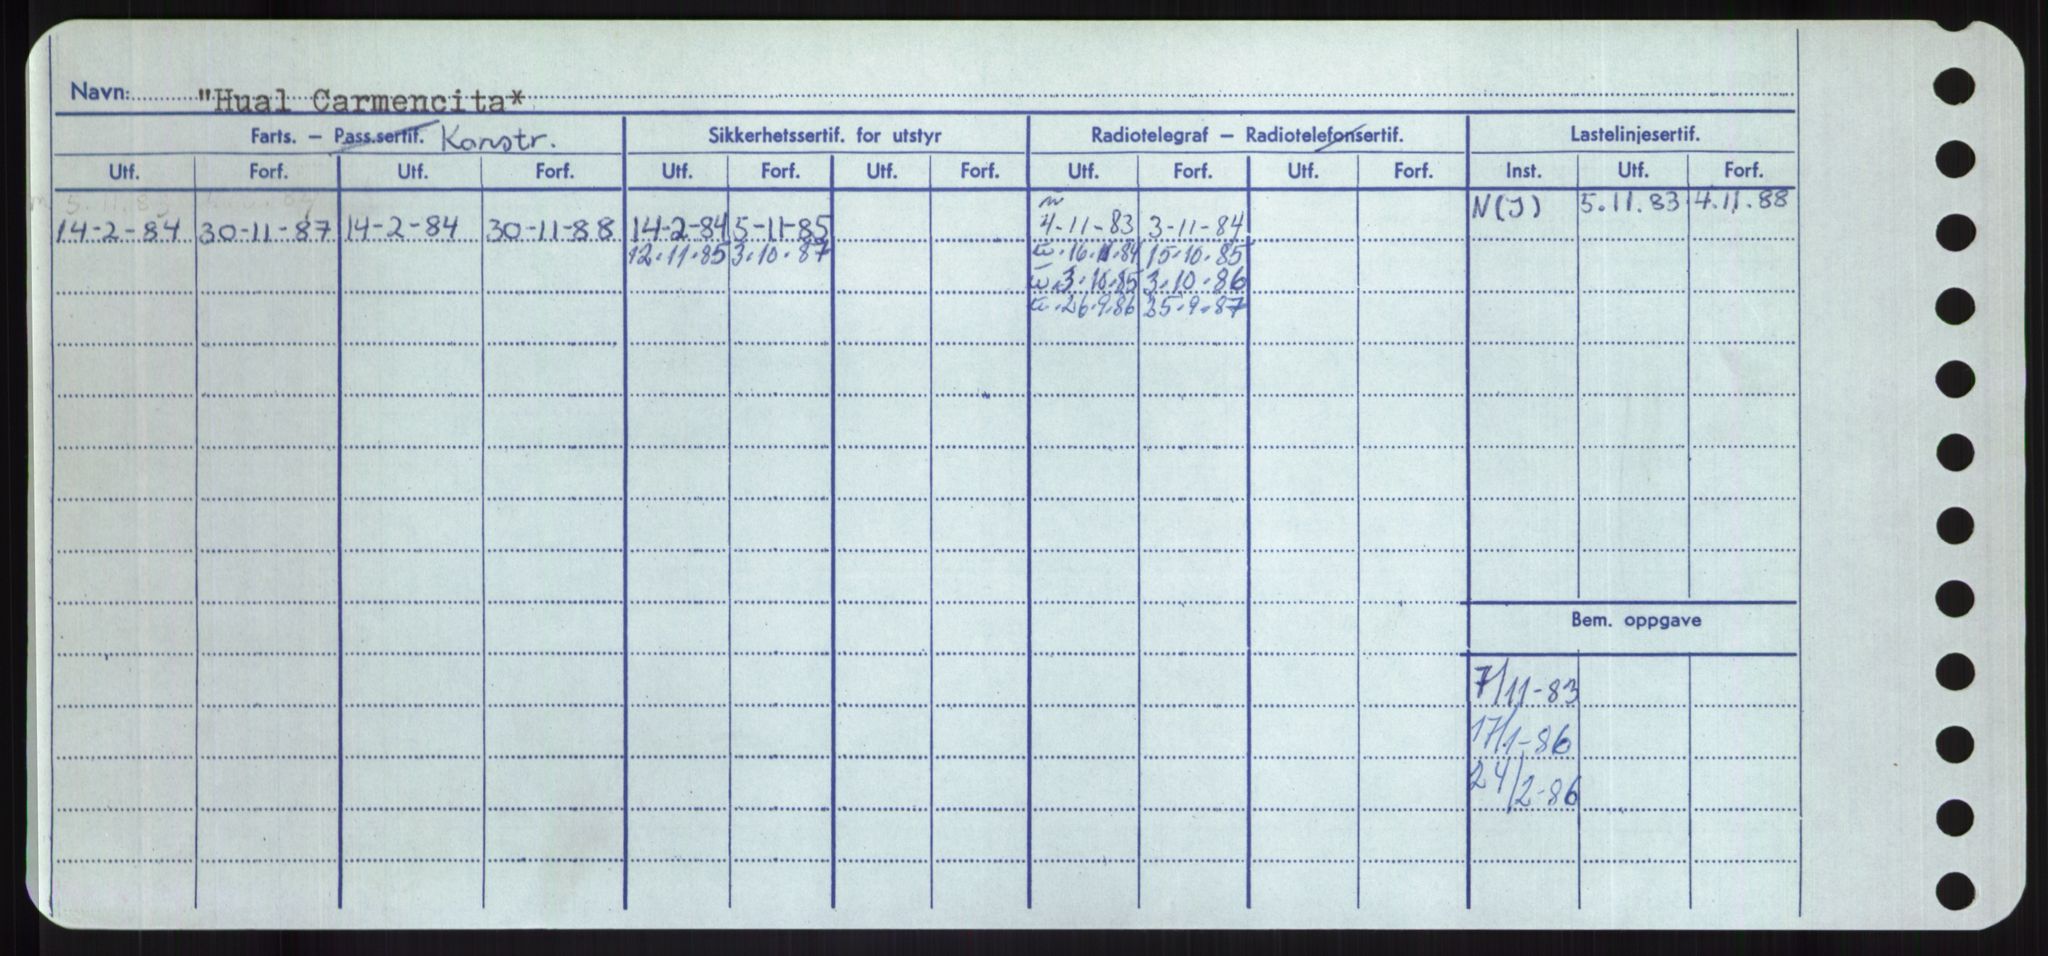 Navn: "Hual Carmencita*
Farts. — Pass.sertif. Konstr. Sikkerhetssertif. for utstyr Radiotelegraf — Radiotelefonsertif. Lastelinjesertif.
Utf. Forf. Utf. Forf. Utf. Forf. Utf. Forf. Utf. Forf. Utf. Forf. Inst. Utf. Forf.
N(J) 5.11.83 4.11.88
14-2-84 30-11-87 14-2-84 30-11-88 14-2-84 5-11-85 4-11-83 3-11-84
12.11.85 3.10.87 15.10.85
3.10.85 3.10.86
26.9.86 25.9.87
Bem. oppgave
7/11-83
17/1-86
24/2-86